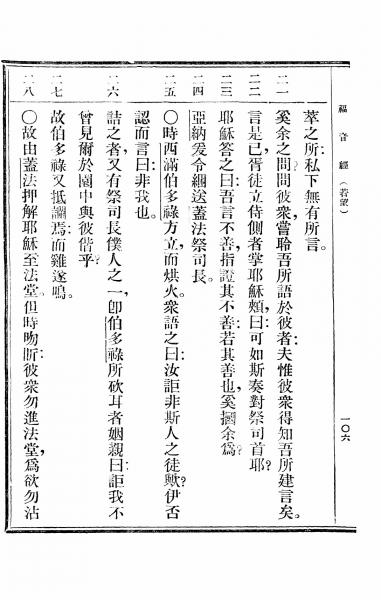 福音經（若望）
一〇六
萃之所、私下無有所言。
二一
奚余之問、問彼衆嘗聆吾所語於彼者、夫惟彼衆得知吾所建言矣。
二二
言是已、胥徒立侍側者、掌耶穌頰、曰、可如斯奏對祭司首耶？
二三
耶穌答之曰、吾言不善、指證其不善、若其善也、奚摑余爲？
二四
亞納爰令綑送蓋法祭司長。
二五
〇時西滿伯多祿方立而烘火。衆語之曰、汝詎非斯人之徒歟？伊否
認而言曰、非我也。
二六
詰之者、又有祭司長僕人之一、卽伯多祿所砍耳者姻親、曰、詎我不
曾見爾於園中與彼偕乎？
二七
故伯多祿又抵讕焉、而雞遂鳴。
二八
〇故由蓋法押解耶穌至法堂。但時昒昕、彼衆勿進法堂、爲欲勿沾